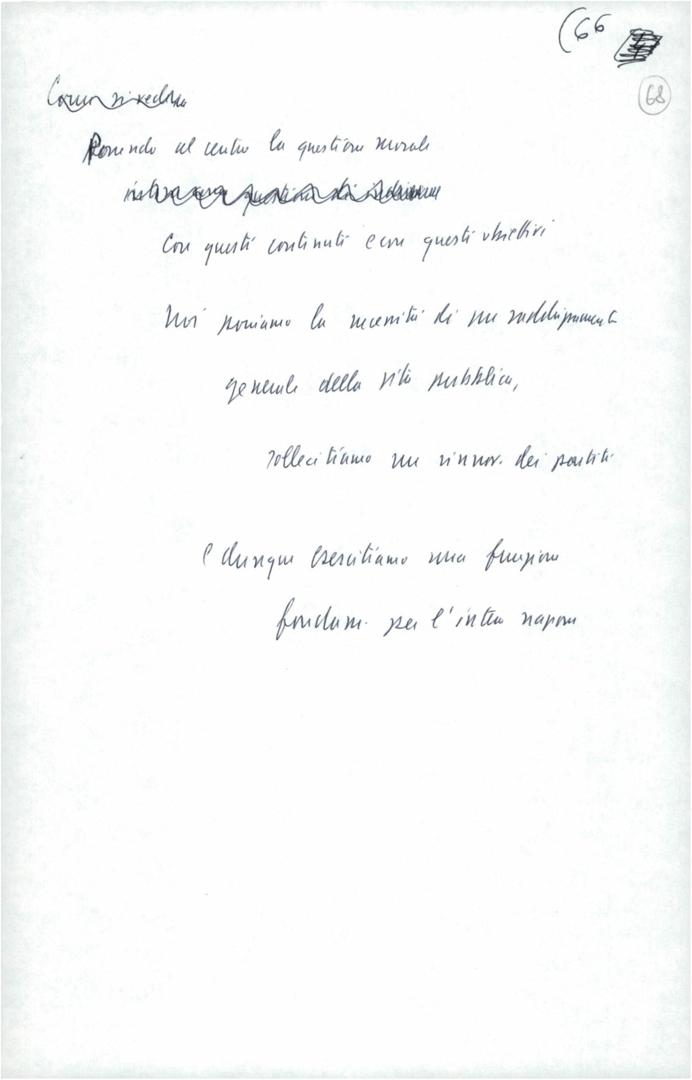 (66
68
Come si vedrà
Ponendo al centro la questione morale
Con questi contenuti e con questi obiettivi
Noi poniamo la necessità di un
generale della vita pubblica,
sollecitiamo un rinnov. dei partiti
e dunque esercitiamo una funzione
fondam. per l'intera nazione